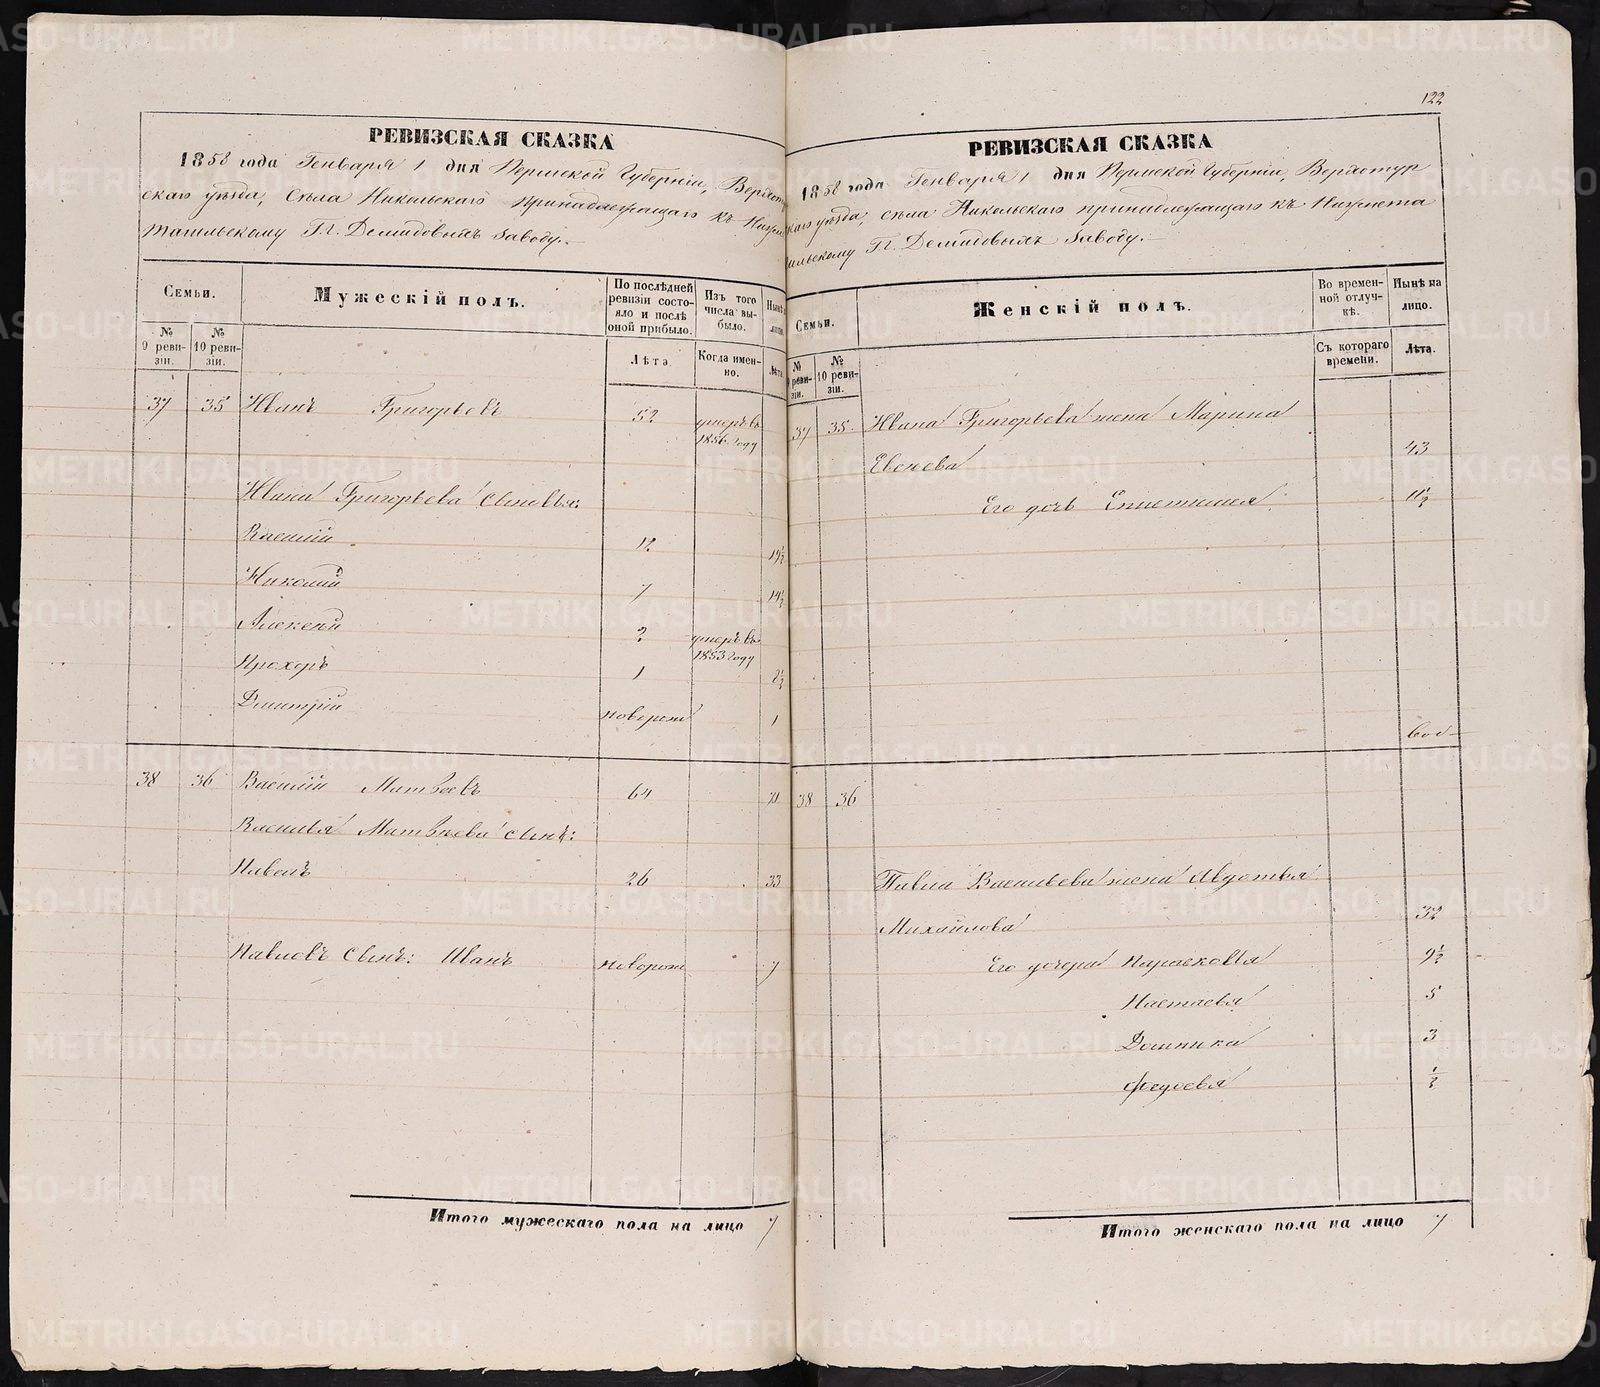 РЕВИЗСКАЯ СКАЗКА
1858 года Генваря 1 дня Пермской Губерніи, Верхотур
скаго уѣзда, Села Никольскаго принадлежащаго къ Нижне
тагильскому Г.г. Демидовыхъ Заводу.
Семьи.
Мужескій полъ.
По послѣдней ревизіи состояло и послѣ оной прибыло.
Изъ того числа выбыло.
Нынѣ на лицо.
№ 9 ревизіи.
№ 10 ревизіи.
Лѣта
Когда именно.
Лѣта.
37 35 Иванъ Григорьевъ 52 умеръ въ 1856 году
Ивана Григорьева сыновья:
Василій 12 19½
Николай 7 14½
Алексѣй 2 умеръ въ 1853 году
Прохоръ 1 8½
Дмитрій новорож 1
38 36 Василій Матвѣевъ 64 71
Василья Матвѣева сынъ:
Павелъ 26 33
Павловъ сынъ: Иванъ новорож 7
Итого мужескаго пола на лицо 7
122
РЕВИЗСКАЯ СКАЗКА
1858 года Генваря 1 дня Пермской Губерніи, Верхотур
скаго уѣзда, села Никольскаго принадлежащаго къ Нижнета
гильскому Г.г. Демидовыхъ Заводу.
Семьи.
Женскій полъ.
Во временной отлучкѣ.
Нынѣ на лицо.
№ 9 ревизіи.
№ 10 ревизіи.
Съ котораго времени.
Лѣта.
37 35 Ивана Григорьева жена Марина
43
Его дочь Епистимия 11½
38 36
Павла Васильева жена Авдотья
Михайлова 32
Его дочери Парасковья 9½
Настасья 5
Домника 3
Федосья ½
Итого женскаго пола на лицо 7
METRIKI.GASO-URAL.RU